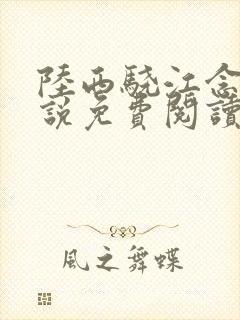 陸西驍江念
說免費閱讀
風之舞蝶